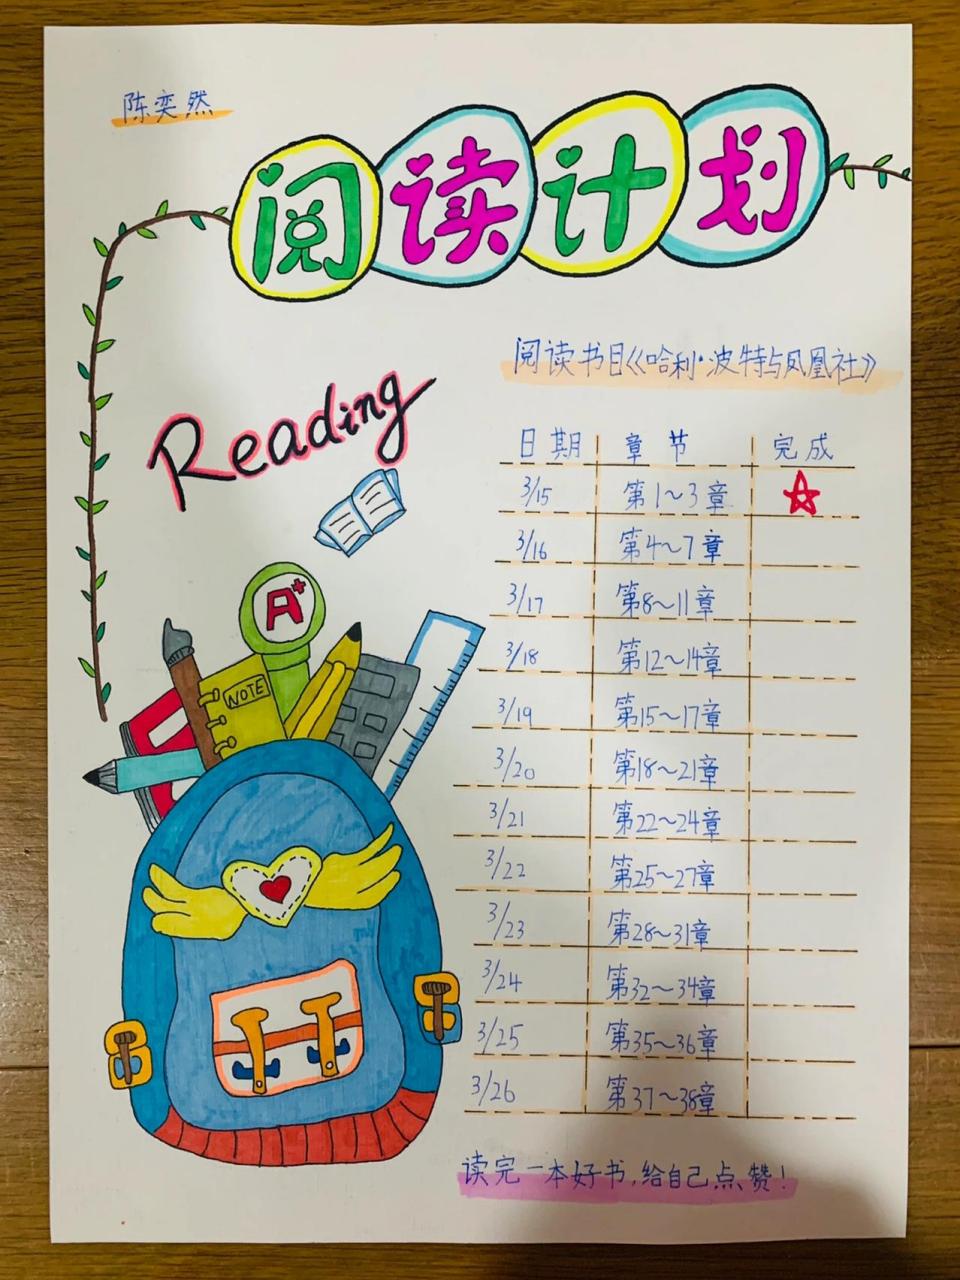 陈奕然
阅读计划
阅读书目《哈利·波特与凤凰社》
Reading
日期 章节 完成
3/15 第1~3章
3/16 第4~7章
3/17 第8~11章
3/18 第12~14章
3/19 第15~17章
3/20 第18~21章
3/21 第22~24章
3/22 第25~27章
3/23 第28~31章
3/24 第32~34章
3/25 第35~36章
3/26 第37~38章
A+
NOTE
读完一本好书,给自己点赞!